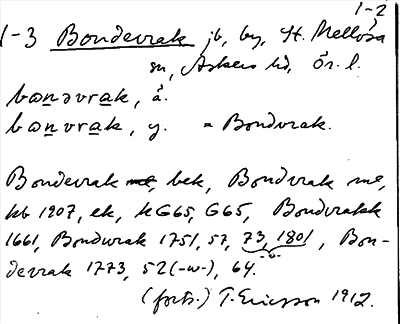 1-2
1-3 Bondevrak jb, by, St. Mellösa
sn, Askers hd, Ör. l.
bωnəvrak, ä.
bωnvrak, y. = Bondvrak.
Bondevrak bek, Bondvrak me,
kb 1907, ek, kG65, G65, Bondvrakk
1661, Bondwrak 1751, 57, 73, 1801, Bon-
devrak 1773, 52(-w-), 64.
(forts.) T. Ericsson 1912.